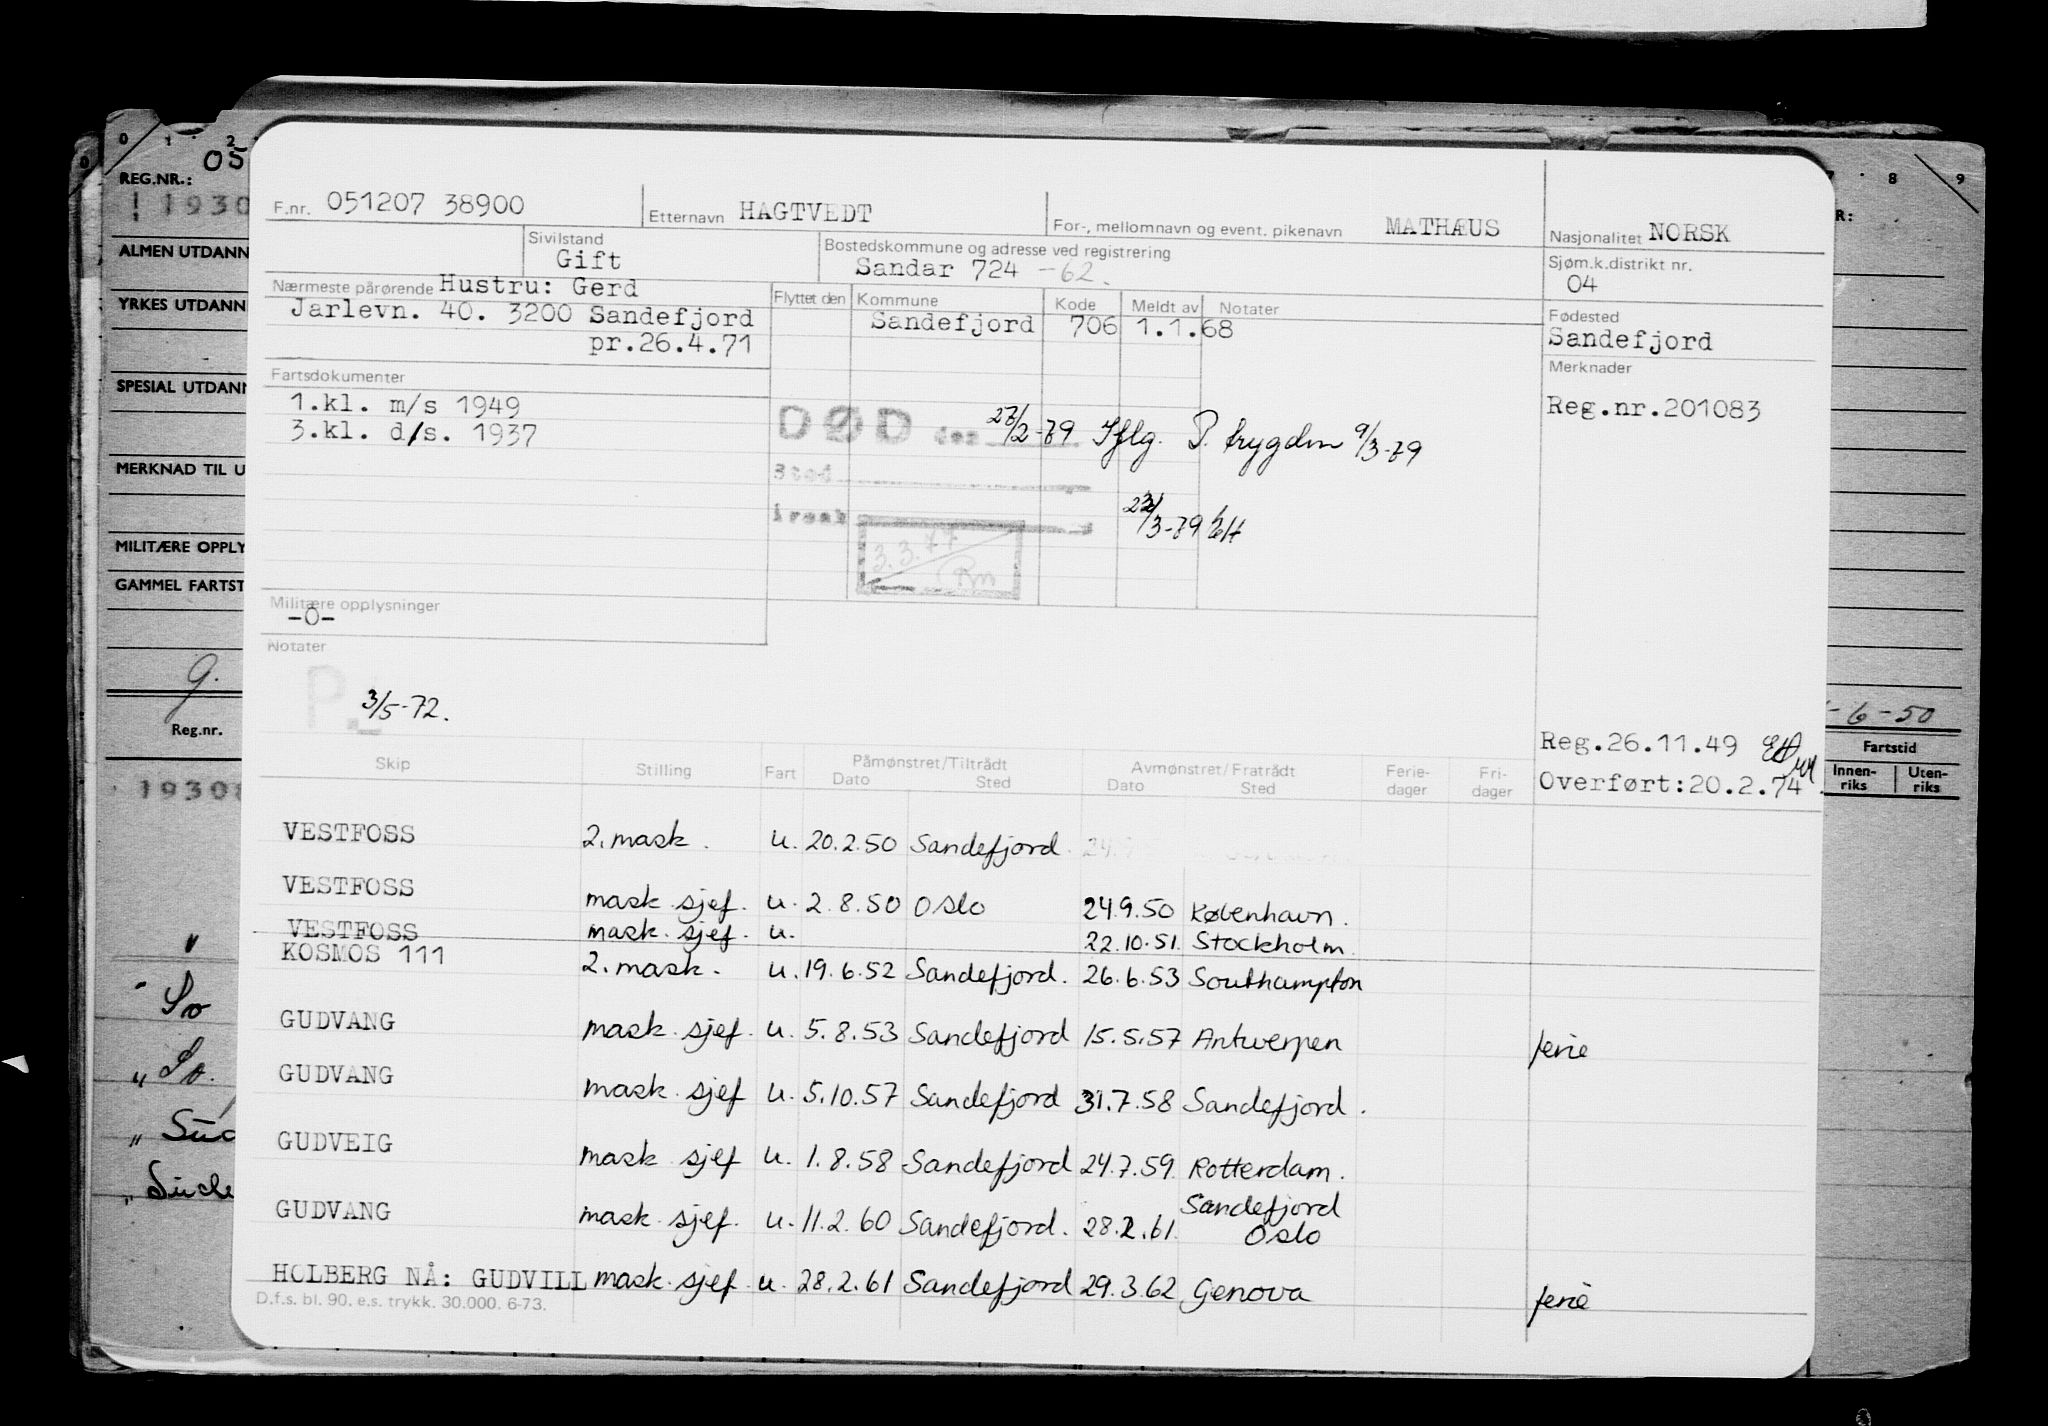 0 1 2 8 9
0
05
REG.NR.:
1930
ALMEN UTDANN
YRKES UTDANN
SPESIAL UTDANN
MERKNAD TIL U
MILITÆRE OPPLY
GAMMEL FARTST
Reg.nr.
1930
R:
-6-50
Fartstid
Innen-riks Uten-riks
F.nr. 051207 38900 Etternavn HAGTVEDT For-, mellomnavn og event. pikenavn MATHÆUS Nasjonalitet NORSK
Sivilstand Gift
Bostedskommune og adresse ved registrering
Sandar 724 -62.
Sjøm.k.distrikt nr.
04
Nærmeste pårørende Hustru: Gerd
Jarlevn. 40. 3200 Sandefjord
pr.26.4.71
Flyttet den Kommune Kode Meldt av Notater
Sandefjord 706 1.1.68
Fødested
Sandefjord
Merknader
Reg.nr.201083
Fartsdokumenter
1.kl. m/s 1949
3.kl. d/s. 1937
DØD den 27/2-79 Iflg. P. trygden 9/3-79
Sted
årsak
22/3-79
3.3.77
Rm
Militære opplysninger
-0-
Notater
P. 3/5-72.
Reg.26.11.49
Overført:20.2.74
Skip Stilling Fart Påmønstret/Tiltrådt Avmønstret/Fratrådt Ferie-dager Fri-dager
Dato Sted Dato Sted
VESTFOSS 2. mask. u. 20.2.50 Sandefjord.
VESTFOSS mask. sjef. u. 2.8.50 Oslo 24.9.50 København.
VESTFOSS mask. sjef. u. 22.10.51. Stockholm.
KOSMOS 111 2. mask. u. 19.6.52 Sandefjord. 26.6.53 Southampton
GUDVANG mask. sjef. u. 5.8.53 Sandefjord 15.5.57 Antwerpen ferie
GUDVANG mask. sjef u. 5.10.57 Sandefjord 31.7.58 Sandefjord.
GUDVEIG mask. sjef u. 1.8.58 Sandefjord 24.7.59 Rotterdam.
GUDVANG mask. sjef. u. 11.2.60 Sandefjord. 28.2.61. Sandefjord
Oslo
HOLBERG NÅ: GUDVILL mask. sjef. u. 28.2.61 Sandefjord 29.3.62 Genova ferie
D.f.s. bl. 90. e.s. trykk. 30.000. 6-73.